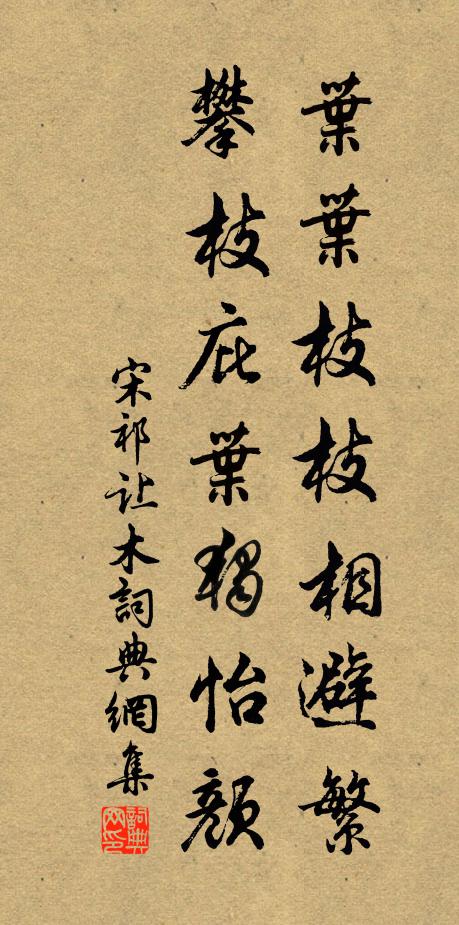 葉葉枝枝相避繁
攀枝庇葉獨怡顏
宋祁让木詞典網集
詞典網印